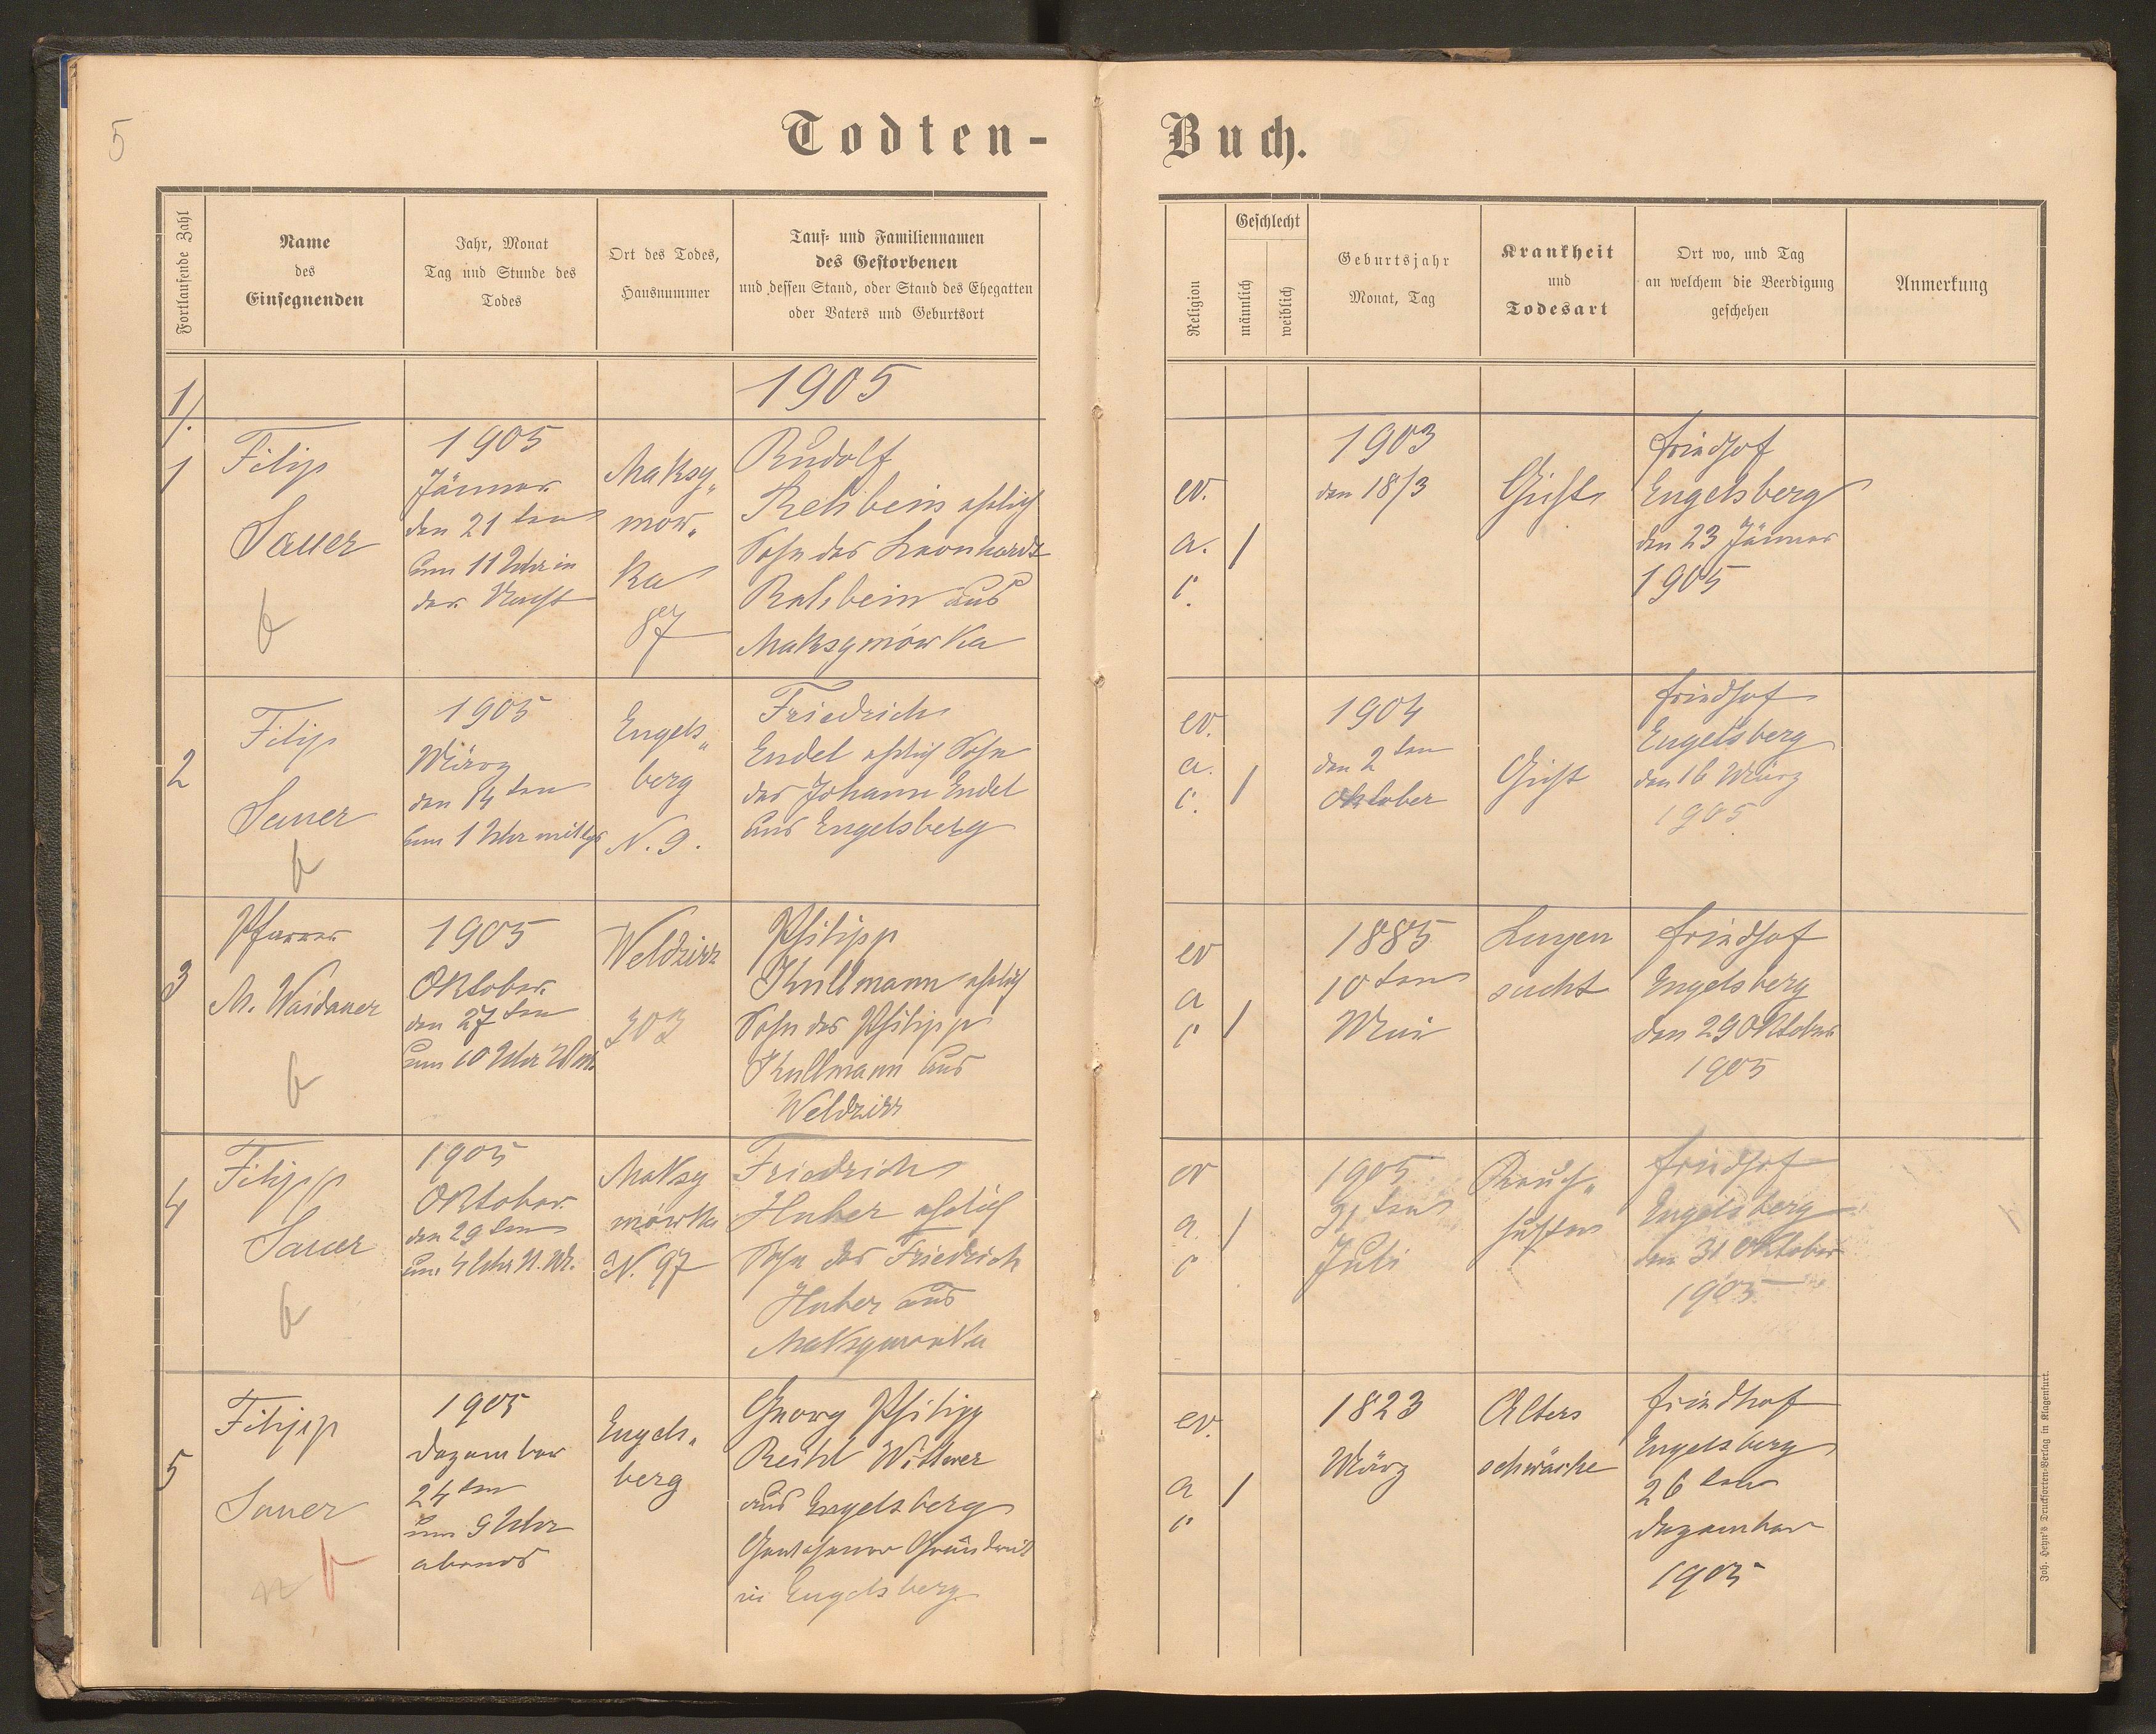 5
Todten-
Buch.
Fortlaufende Zahl
Name
des
Einsegnenden
Jahr, Monat
Tag und Stunde des
Todes
Ort des Todes,
Hausnummer
Tauf- und Familiennamen
des Gestorbenen
und dessen Stand, oder Stand des Ehegatten
oder Vaters und Geburtsort
Religion
Geschlecht
männlich
weiblich
Geburtsjahr
Monat, Tag
Krankheit
und
Todesart
Ort wo, und Tag
an welchem die Beerdigung
geschehen
Anmerkung
1905
1
Filip
Sauer
1905
Jänner
den 21 ten
um 11 Uhr in
der Nacht
Maksy„
mow„
ka
87
Rudolf
Rehbein ehelich
Sohn des Leonhardt
Rehbein aus
Maksymówka
ev.
a.
c.
/
1903
den 18/3
Gicht
Friedhof
Engelsberg
den 23 Jänner
1905
2
Filip
Sauer
1905
März
den 14 ten
um 1 Uhr mittgs
Engels„
berg
N. 9.
Friedrich
Endel ehelich Sohn
des Johann Endel
aus Engelsberg
ev.
a.
c.
/
1904
den 2 ten
Oktober
Gicht
Friedhof
Engelsberg
den 16 März
1905
3
Pfarrer
M. Waidauer
1905
Oktober
den 27 ten
um 10 Uhr
Weldzirz
303
Philipp
Kullmann ehelich
Sohn des Philipp
Kullmann aus
Weldzirz
ev
a
c
/
1885
10 ten
Mai
Lungen
sucht
Friedhof
Engelsberg
den 29 Oktober
1905
4
Filipp
Sauer
1905
Oktober
den 29 ten
um 4 Uhr N. M.
Maksy
mówka
N. 97
Friedrich
Huber ehelich
Sohn des Friedrich
Huber aus
Maksymowka
ev
a
c
/
1905
31 ten
Juli
Keuch„
husten
Friedhof
Engelsberg
den 31 Oktober
1905
5
Filipp
Sauer
1905
Dezember
24 ten
um 9 Uhr
abends
Engels„
berg
Georg Philipp
Wittwer
aus Engelsberg
Gewesener
in Engelsberg
ev.
a
c
/
1823
März
Alters
schwäche
Friedhof
Engelsberg
26 ten
Dezember
1905
Joh. Heyn's Drucksorten-Verlag in Klagenfurt.